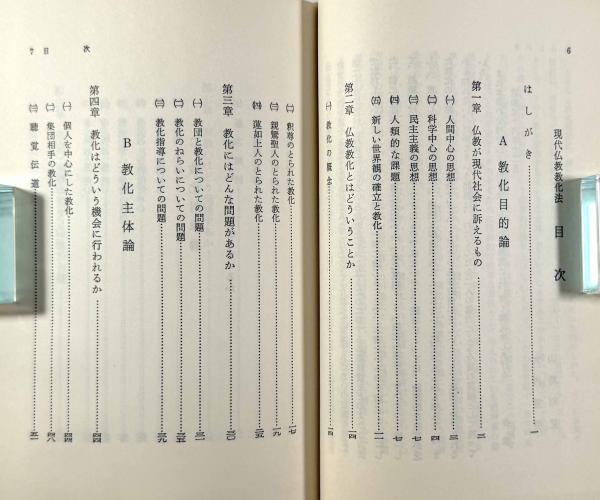 6
現代仏教教化法 目次
はしがき……一
A 教化目的論
第一章 仏教が現代社会に訴えるもの……二
㈠ 人間中心の思想……三
㈡ 科学中心の思想……四
㈢ 民主主義の思想……七
㈣ 人類的な課題……七
㈤ 新しい世界観の確立と教化……一一
第二章 仏教教化とはどういうことか……一四
㈠ 教化の概念……一四
目次 7
㈡ 釈尊のとられた教化……一七
㈢ 親鸞聖人のとられた教化……一九
㈣ 蓮如上人のとられた教化……二五
第三章 教化にはどんな問題があるか……三〇
㈠ 教団と教化についての問題……三一
㈡ 教化のねらいについての問題……三五
㈢ 教化指導についての問題……三九
B 教化主体論
第四章 教化はどういう機会に行われるか……四四
㈠ 個人を中心にした教化……四四
㈡ 集団相手の教化……四八
㈢ 聴覚伝道……五一